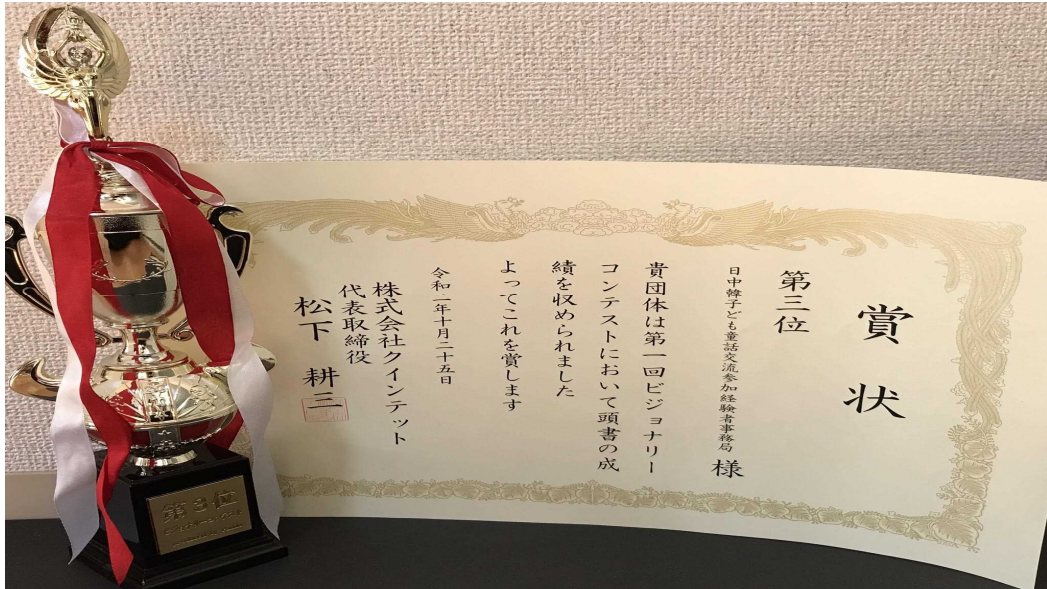 賞状
第三位
日中韓子ども童話交流参加経験者事務局 様
貴団体は第一回ビジョナリー
コンテストにおいて頭書の成
績を収められました
よってこれを賞します
令和一年十月二十五日
株式会社クインテット
代表取締役
松下 耕三
第3位